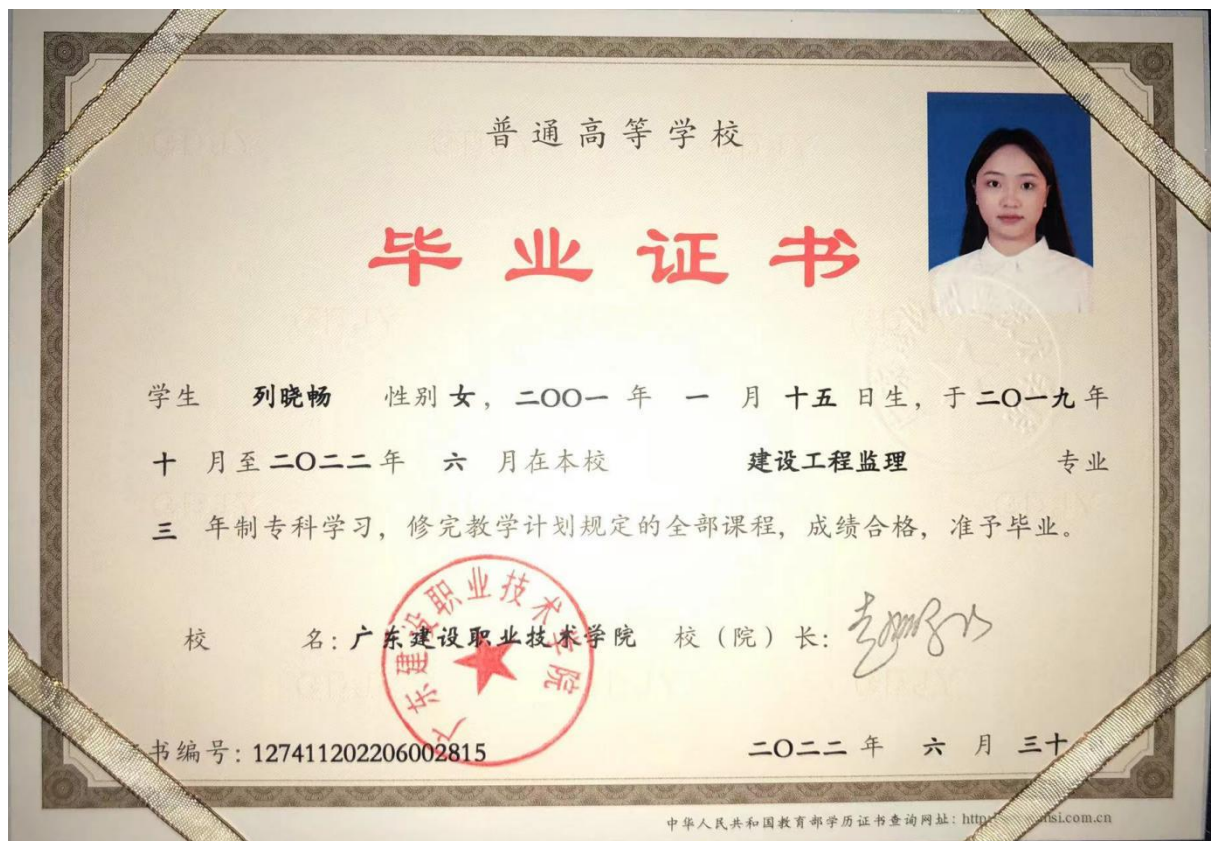 普通高等学校
毕业证书
学生 列晓畅 性别 女，二〇〇一 年 一 月 十五 日生，于 二〇一九 年
十 月至 二〇二二 年 六 月在本校 建设工程监理 专业
三 年制专科学习，修完教学计划规定的全部课程，成绩合格，准予毕业。
校 名：广东建设职业技术学院 校（院）长：
广东建设职业技术学院
书编号：127411202206002815 二〇二二 年 六 月 三十
中华人民共和国教育部学历证书查询网址：http si.com.cn